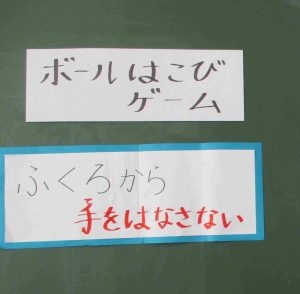 ボールはこび
ゲーム
ふくろから
手をはなさない